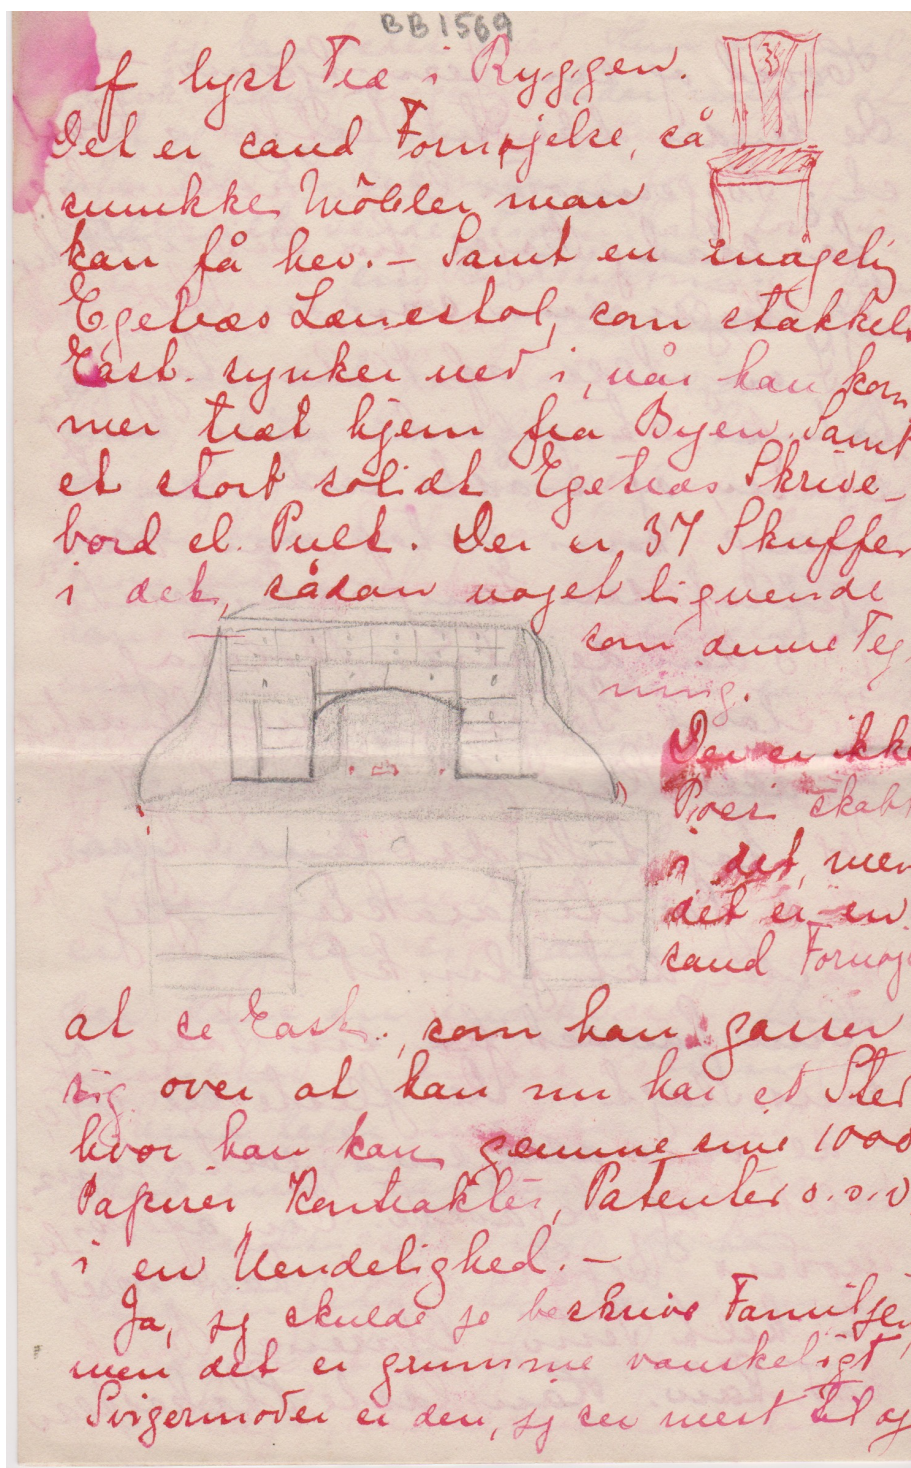 BB1569
af lyst Træ i Ryggen.
Det er sand Fornøjelse, så
smukke Möbler man
kan få her. – Samt en mågelig
Egetræs Lænestol, som stakkels
East. synker ned i, når han kom
mer træt hjem fra Byen. Samt
et stort solidt Egetræs Skrive-
bord el. Pult. Der er 37 Skuffer
i det, sådan noget lignende
som denne Teg-
ning.
Der er ikke
i det, men
det er en
sand Fornøj
at se East., som han gasser
sig over at han nu har et Sted
hvor han kan gemme sine 1000
Papirer, Kontrakter, Patenter o.s.v
i en Uendelighed. –
Ja, jg skulde jo beskrive Familjen,
men det er grumme vanskeligt,
Svigermoder er den, jg ser mest til og